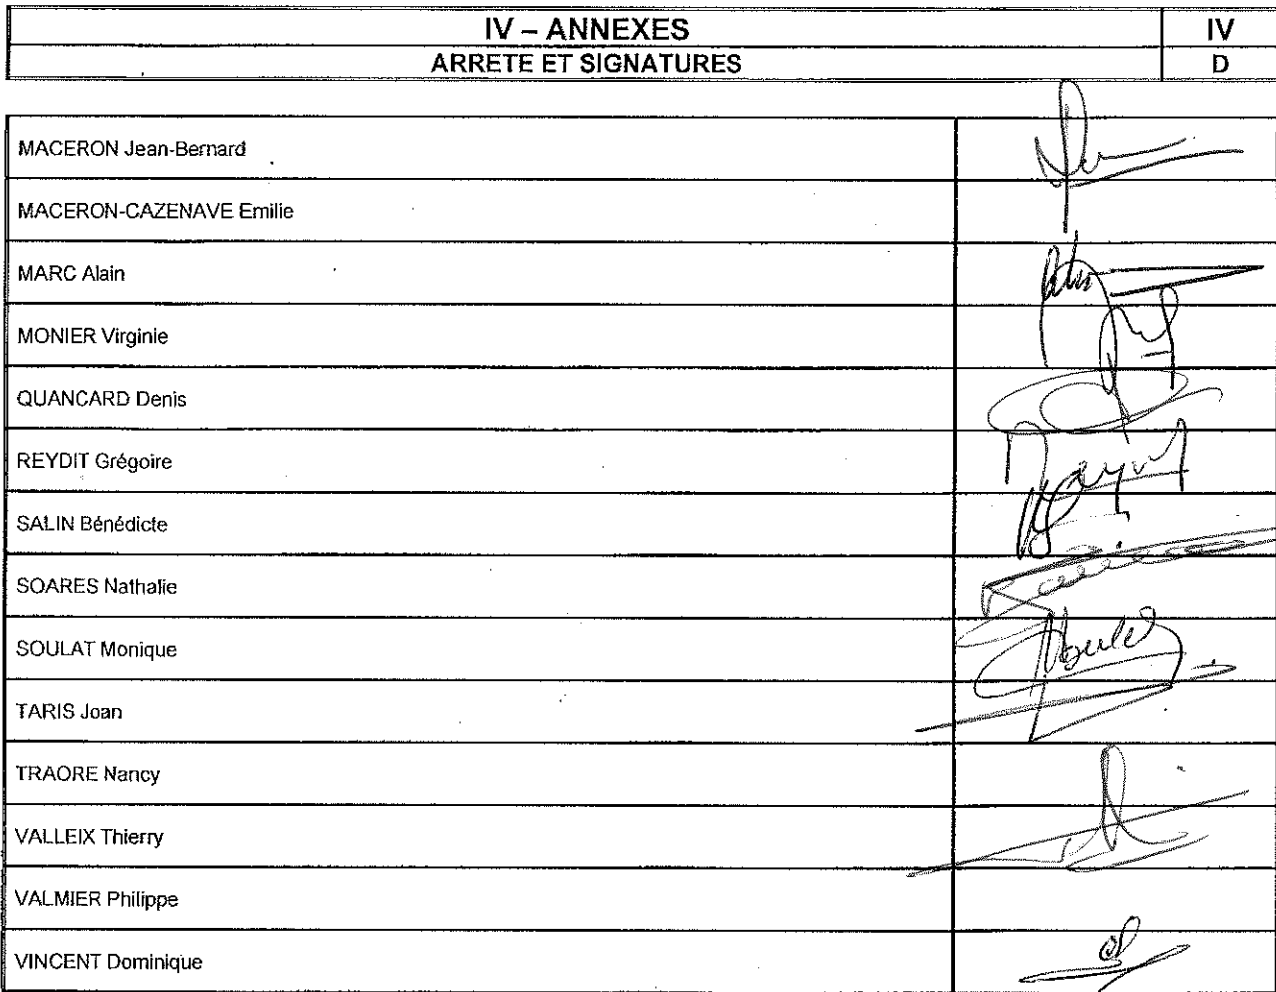 IV – ANNEXES IV
ARRETE ET SIGNATURES D
MACERON Jean-Bernard
MACERON-CAZENAVE Emilie
MARC Alain
MONIER Virginie
QUANCARD Denis
REYDIT Grégoire
SALIN Bénédicte
SOARES Nathalie
SOULAT Monique
TARIS Joan
TRAORE Nancy
VALLEIX Thierry
VALMIER Philippe
VINCENT Dominique